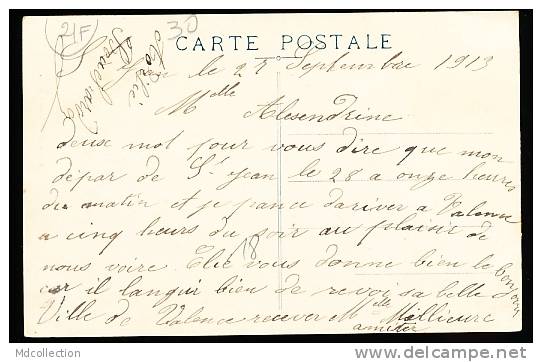 (21F)
30
CARTE POSTALE
le 27 Septembre 1913
Melle
Alesendrine
deuse mot pour vous dire que mon
dépar de St Jean le 28 a onze heures
du matin et je pance dariver a Valence
a cinq heurs du soir au plaisir de
18
nous voire. Elie vous donne bien le bonjour
car il langui bien de revoir sa belle
Ville de Valence recever Melle Millieure
amitier
Mdcollection
delcampe.net